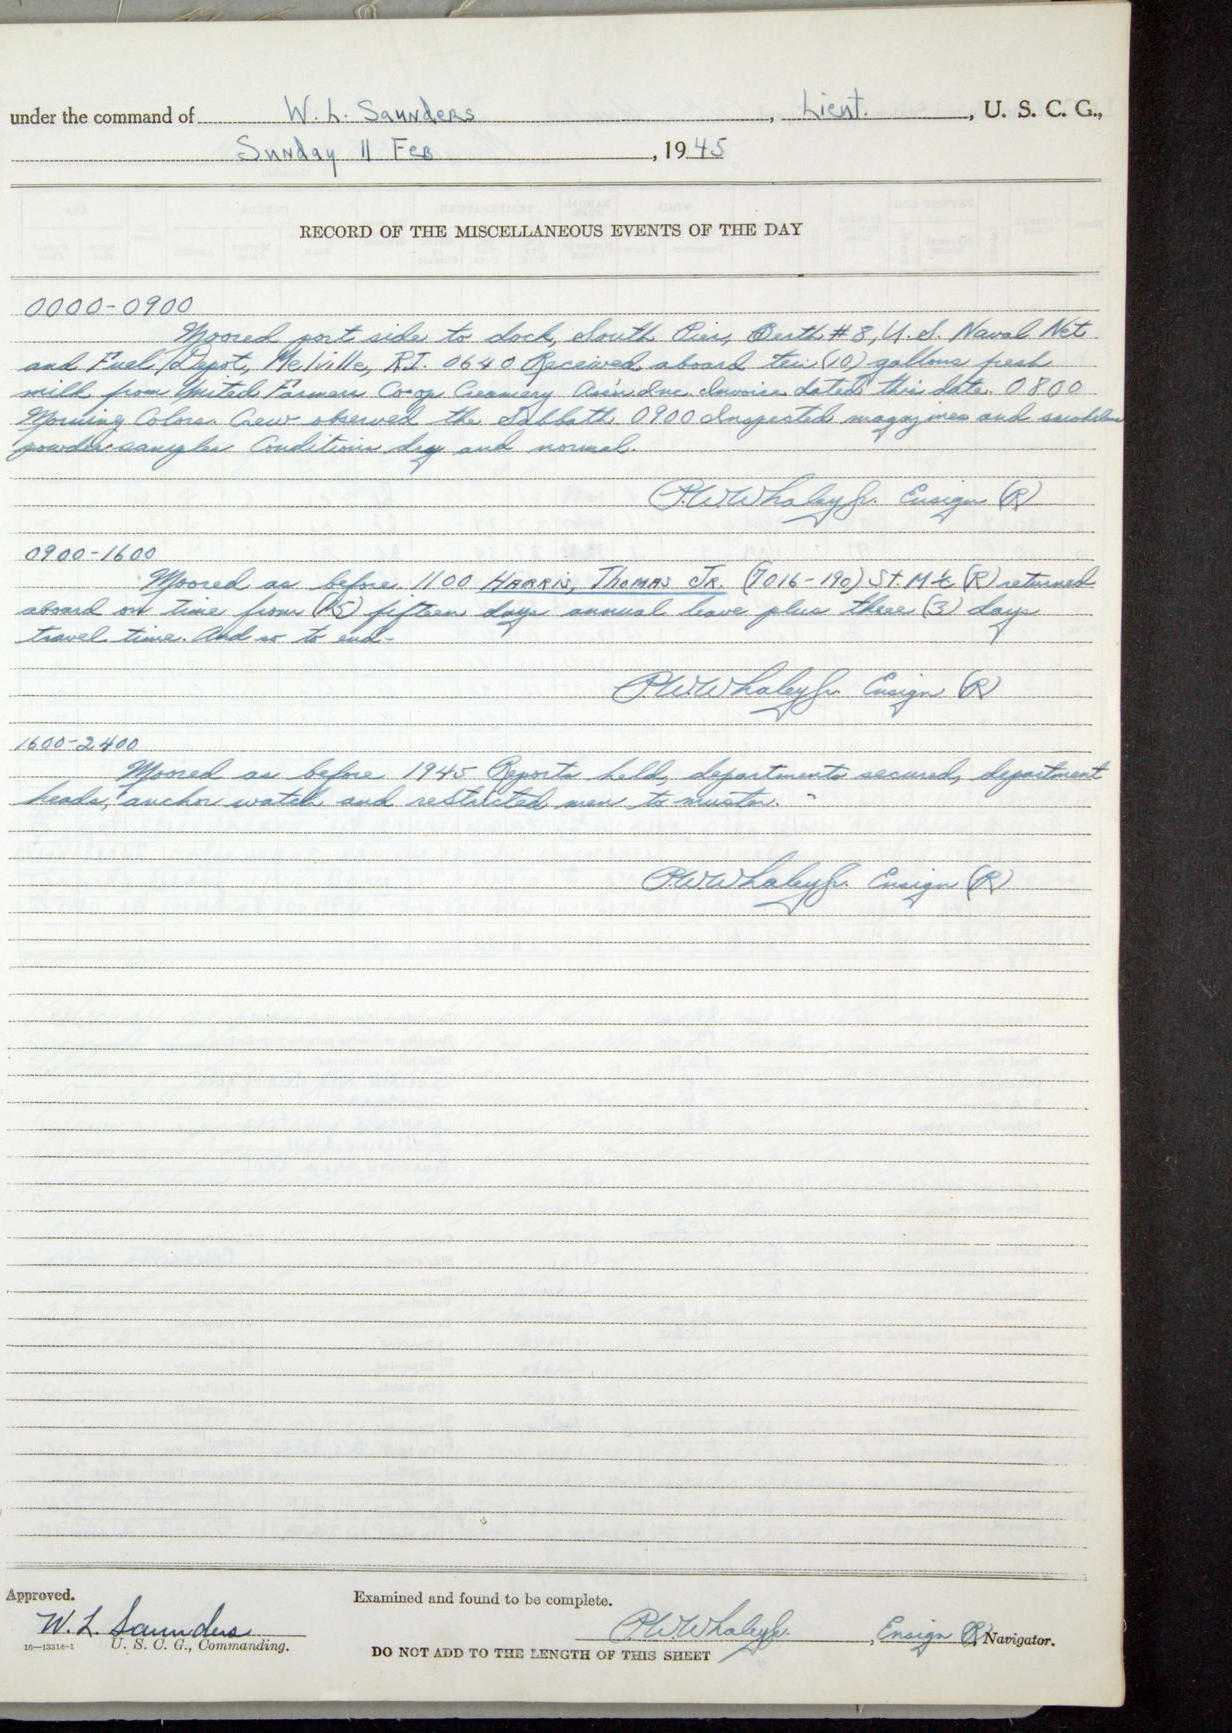 under the command of W. L. Saunders, Lieut., U. S. C. G.,
Sunday 11 Feb, 1945
RECORD OF THE MISCELLANEOUS EVENTS OF THE DAY
0000-0900
Moored port side to dock, South Pier, Berth #8, U.S. Naval Net
and Fuel Depot, Melville, R.I. 0640 Received aboard ten (10) gallons fresh
milk from United Farmers Co-op Creamery Ass'n Inc. Invoice dated this date. 0800
Morning Colors. Crew observed the Sabbath 0900 Inspected magazines and smokeless
powder samples Conditions dry and normal.
P.W. Whaley Jr. Ensign (R)
0900-1600
Moored as before 1100 HARRIS, THOMAS JR. (7016-190) St. M (R) returned
aboard on time from (15) fifteen days annual leave plus three (3) days
travel time. And so to end-
P.W. Whaley Jr. Ensign (R)
1600-2400
Moored as before 1945 Reports held, departments secured, department
heads, anchor watch and restricted men to muster.
P.W. Whaley Jr. Ensign (R)
Approved.
Examined and found to be complete.
W. L. Saunders
P.W. Whaley Jr., Ensign (R), Navigator.
16—13314-1 U. S. C. G., Commanding.
DO NOT ADD TO THE LENGTH OF THIS SHEET